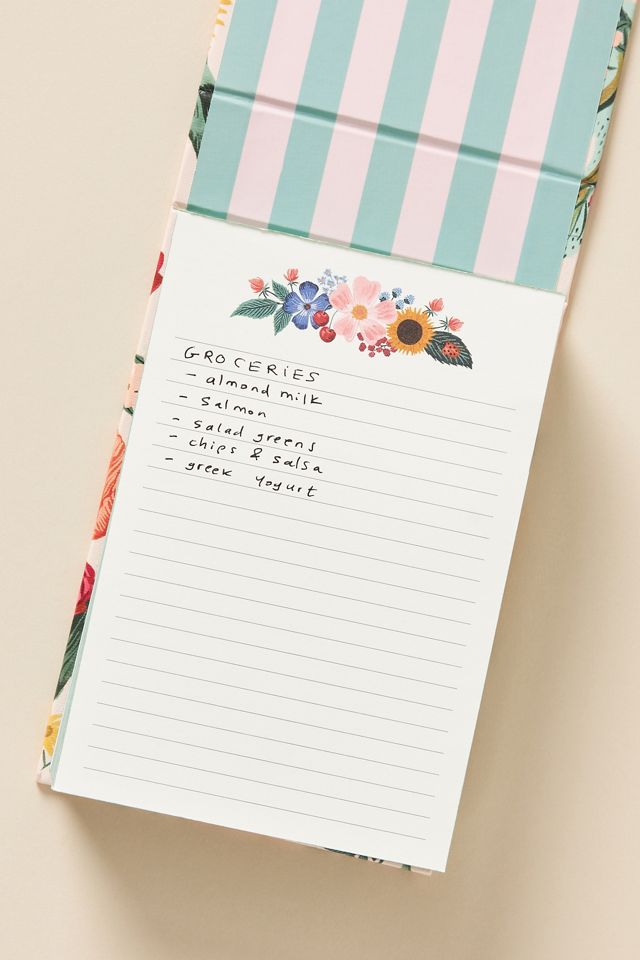 GROCERIES
- almond milk
- salmon
- salad greens
- chips & salsa
- greek yogurt